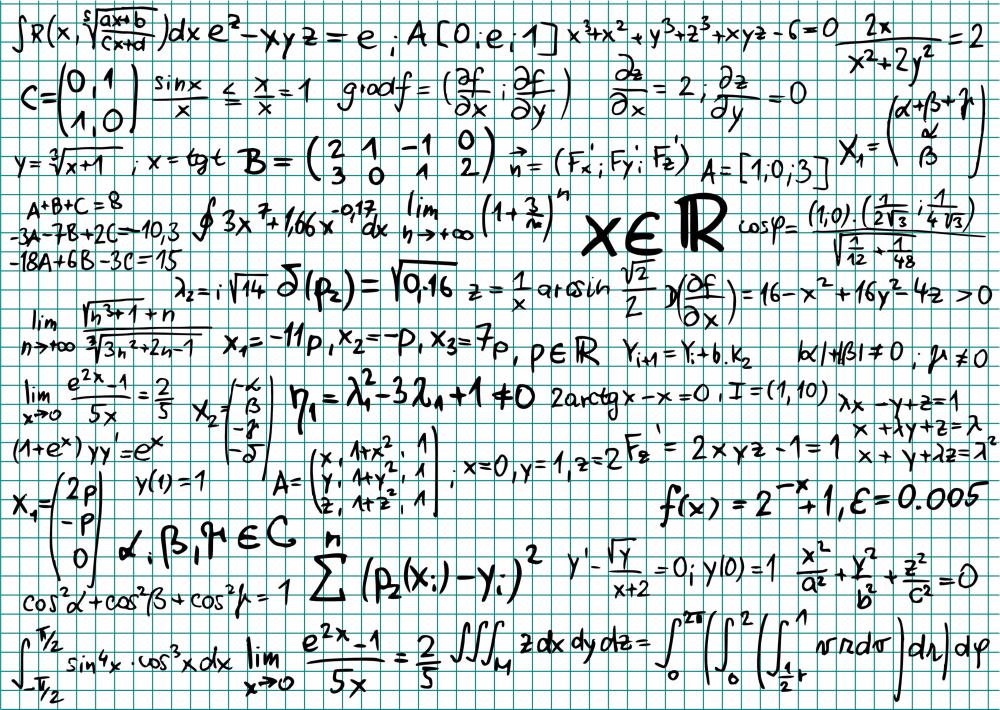 ∫R(x, ⁵√((ax+b)/(cx+d)))dx e^z − xyz = e ; A[0;e;1] x³+x²+y³+z³+xyz−6=0 2x/(x²+2y²) = 2
C=(0,1 1,0) sinx/x ≤ x/x = 1 gradf = (∂f/∂x ; ∂f/∂y) ∂z/∂x = 2 ; ∂z/∂y = 0
y = ³√(x+1) ; x = tgt B = (2 1 −1 0 3 0 1 2) n⃗ = (Fx'; Fy'; Fz') A=[1;0;3] X₁ = (α+β+γ α β)
A+B+C=8
-3A-7B+2C=-10,3
-18A+6B-3C=15
∮3x⁷+1,66x^(-0,17)dx lim n→+∞ (1+3/n)^n x∈ℝ cosφ= (1,0)·(1/(2√3) ; 1/(4√3)) / √(1/12 + 1/48)
λ₂=i√14 δ(p₂) = √0,16 z = 1/x arcsin √2/2 D(∂f/∂x) = 16−x²+16y²−4z >0
lim n→+∞ (√(n³+1)+n)/(³√(3n²+2n−1)) x₁=−11p, x₂=−p, x₃=7p, p∈ℝ Yᵢ₊₁=Yᵢ+b.k₂ |α|+|β|≠0 ; γ≠0
lim x→0 (e^(2x)−1)/5x = 2/5 X₂=(−α β −γ −δ) η₁ = λ₁²−3λ₁+1 ≠0 2arctgx−x=0, I=(1,10)
λx −y+z=1
x +λy+z=λ
x + y+λz=λ²
(1+e^x) yy'=e^x y(1)=1 A=(x, 1+x², 1 y, 1+y², 1 z, 1+z², 1) ; x=0,y=1,z=2 Fz' = 2xyz−1=1
X₁=(2p −p 0) α,β,γ∈C f(x) = 2^(−x)+1, ε=0.005
cos²α+cos²β+cos²γ=1 ∑ n (p₂(xᵢ)−yᵢ)² y'−√y/(x+2) =0; y(0)=1 x²/a² + y²/b² + z²/c² =0
∫_(−π/2)^(π/2) sin⁴x·cos³xdx lim x→0 (e^(2x)−1)/5x = 2/5 ∭_M zdxdydz= ∫₀^(2π)(∫₀²(∫_(½r)^1 vrdv)dr)dφ